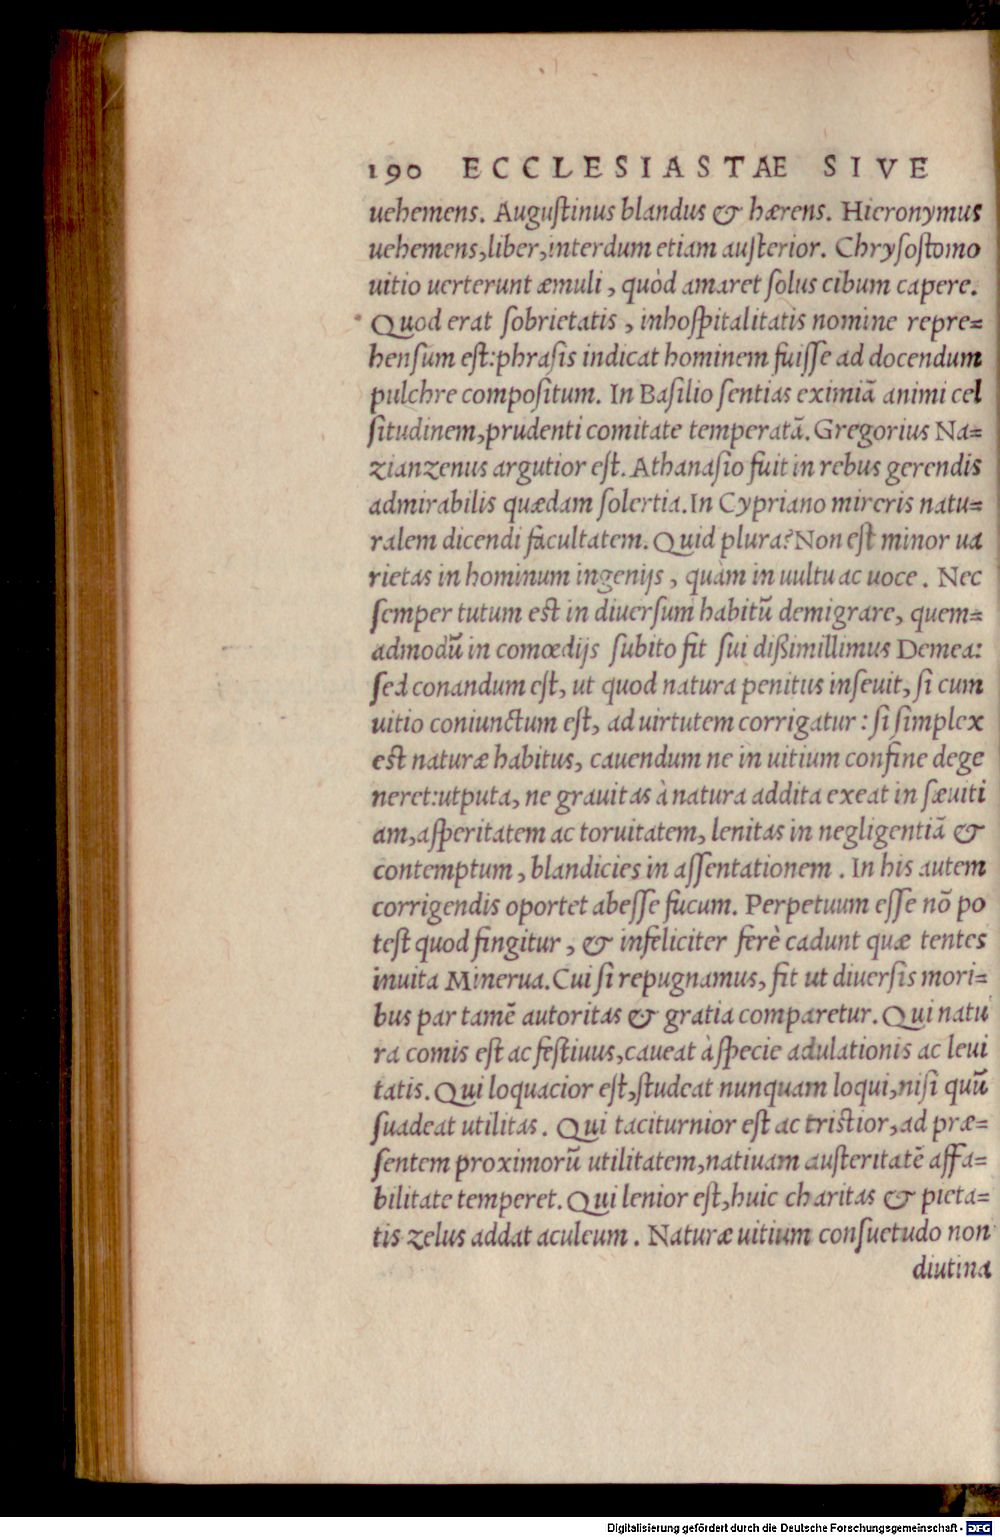 190 ECCLESIASTAE SIVE
uehemens. Auguſtinus blandus & hærens. Hieronymus
uehemens,liber,interdum etiam auſterior. Chryſoſtomo
uitio uerterunt æmuli, quòd amaret ſolus cibum capere.
Quod erat ſobrietatis, inhoſpitalitatis nomine repre=
henſum eſt:phraſis indicat hominem fuiſſe ad docendum
pulchre compoſitum. In Baſilio ſentias eximiā animi cel
ſitudinem,prudenti comitate temperatā. Gregorius Na=
zianzenus argutior eſt. Athanaſio fuit in rebus gerendis
admirabilis quædam ſolertia. In Cypriano mireris natu=
ralem dicendi facultatem. Quid plura? Non eſt minor ua
rietas in hominum ingenijs, quàm in uultu ac uoce. Nec
ſemper tutum est in diuerſum habitū demigrare, quem=
admodū in comœdijs ſubito fit ſui dißimillimus Demea:
ſed conandum eſt, ut quod natura penitus inſeuit, ſi cum
uitio coniunctum eſt, ad uirtutem corrigatur: ſi ſimplex
est naturæ habitus, cauendum ne in uitium confine dege
neret:utputa, ne grauitas à natura addita exeat in ſæuiti
am,aſperitatem ac toruitatem, lenitas in negligentiā &
contemptum, blandicies in aſſentationem. In his autem
corrigendis oportet abeſſe fucum. Perpetuum eſſe nō po
teſt quod fingitur, & infeliciter ferè cadunt quæ tentes
inuita Minerua. Cui ſi repugnamus, fit ut diuerſis mori=
bus par tamē autoritas & gratia comparetur. Qui natu
ra comis eſt ac feſtiuus,caueat à ſpecie adulationis ac leui
tatis. Qui loquacior eſt,ſtudeat nunquam loqui,niſi quū
ſuadeat utilitas. Qui taciturnior eſt ac tristior,ad præ=
ſentem proximorū utilitatem,natiuam auſteritatē affa=
bilitate temperet. Qui lenior eſt,huic charitas & pieta=
tis zelus addat aculeum. Naturæ uitium conſuetudo non
diutina
Digitalisierung gefördert durch die Deutsche Forschungsgemeinschaft - DFG